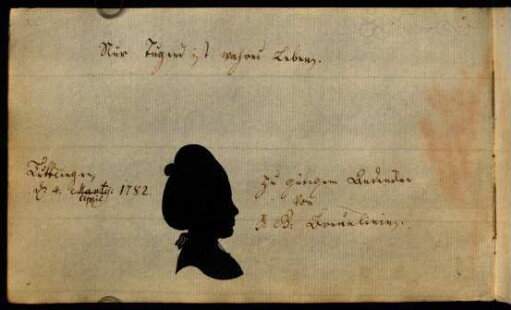 Nur Tugend ist wahres Leben.
Tuttlingen
d. 4. Martii: 1782
Aprill
Zu gütigem Andencken
von
J. B.